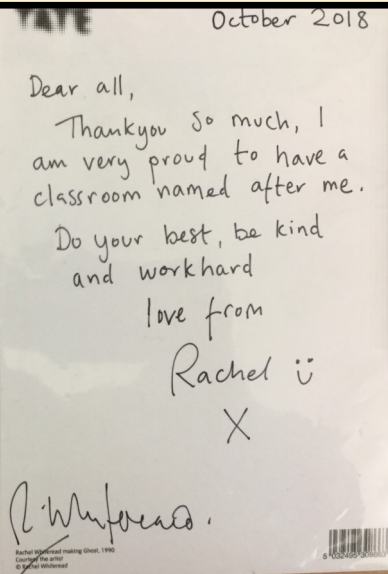 TATE
October 2018
Dear all,
Thankyou so much, I
am very proud to have a
classroom named after me.
Do your best, be kind
and workhard
love from
Rachel
X
R. Whiteread.
Rachel Whiteread making Ghost, 1990
Courtesy the artist
© Rachel Whiteread